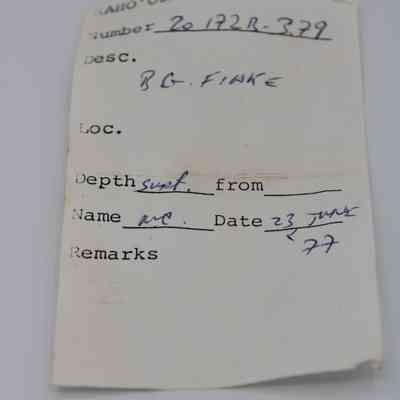 Number 20 172R-379
Desc.
BG. FLAKE
Loc.
Depth surf. from
Name Date 23 JUNE
77
Remarks